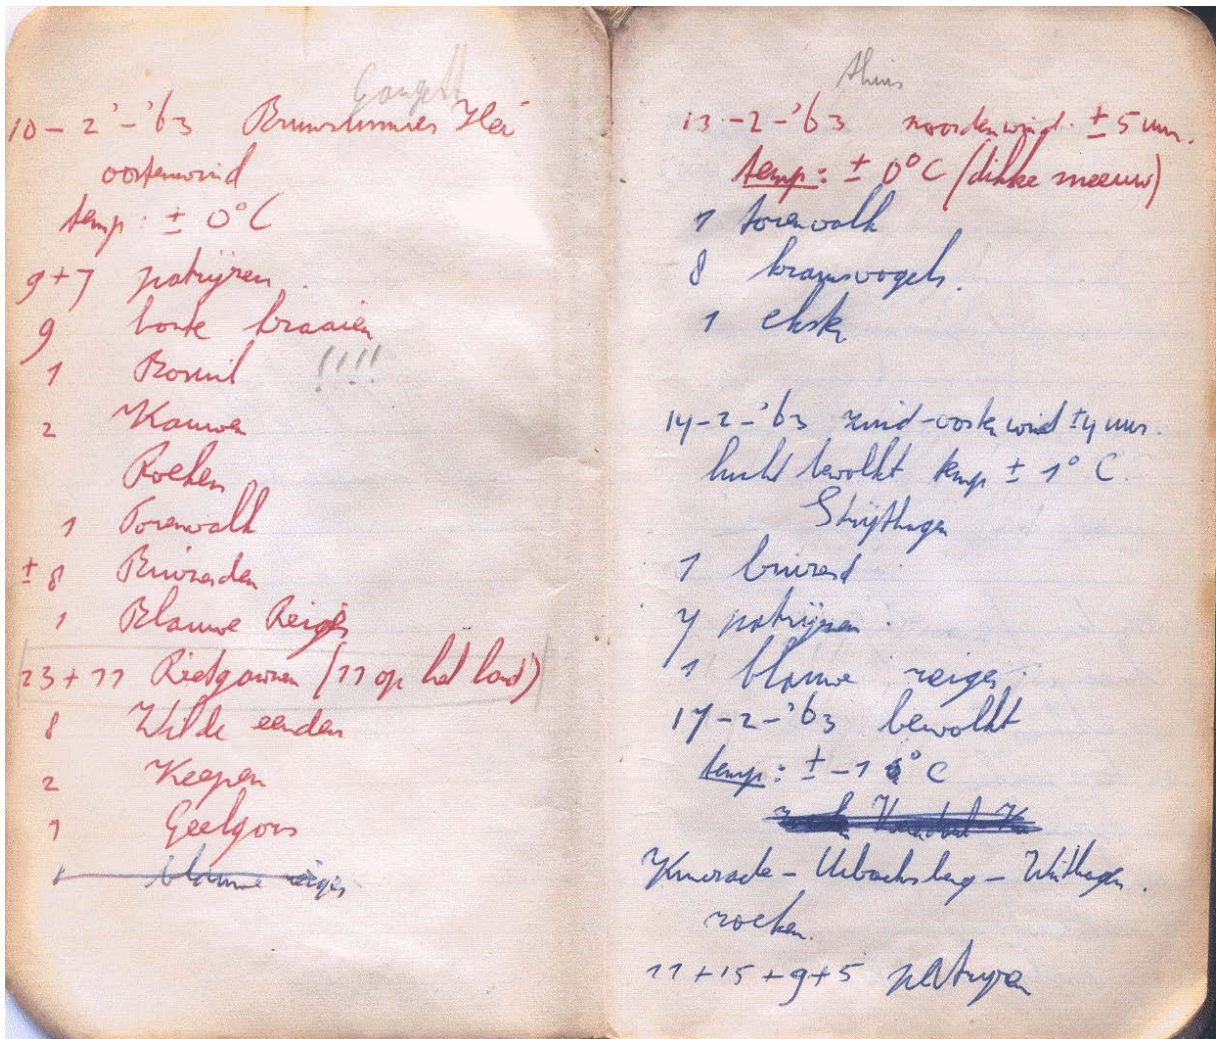 Gangelt
10-2-'63 Brunsummer Hei
oostenwind
temp: ± 0°C
9+7 patrijzen.
9 bonte kraaien
1 Bosuil !!!!
2 Kauwen
Roeken
1 Torenvalk
± 8 Buizerden
1 Blauwe Reiger
23+11 Rietganzen (11 op het land)
8 Wilde eenden
2 Kepen
1 Geelgors
1 blauwe reiger
thuis
13-2-'63 noordenwind. ± 5 uur.
temp: ± 0°C (dikke sneeuw)
1 torenvalk
8 kramsvogels.
1 ekster
14-2-'63 zuid-oosten wind ± 4 uur.
lucht bewolkt temp ± 1° C.
Strijthagen
1 buizerd
4 patrijzen.
1 blauwe reiger.
17-2-'63 bewolkt
temp: ± -1° C
- Urbachsberg - Winthagen.
roeken.
11+15+9+5 patrijzen